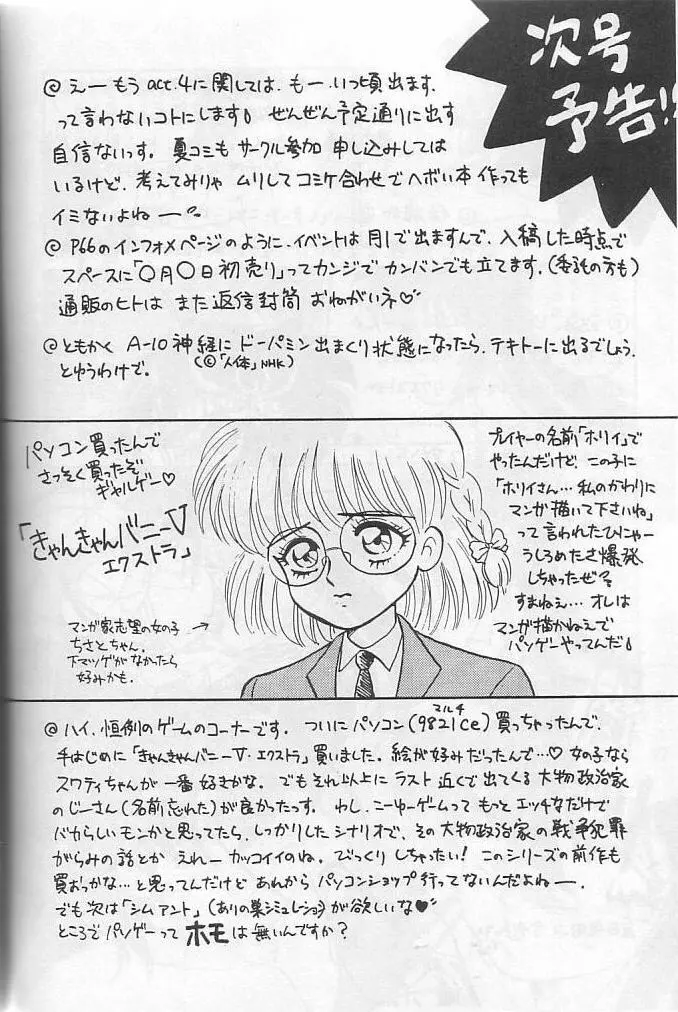 次号
予告!!
@ えー もう act.4に関しては、もー、いつ頃出ます、
って言わないコトにします。ぜんぜん予定通りに出す
自信ないっす。夏コミも サークル参加 申し込みしては
いるけど、考えてみりゃ ムリしてコミケ合わせでヘボい本 作っても
イミないよねー
@ P66のインフォメページのように、イベントは 月1で出ますんで、入稿した時点で
スペースに「○月○日初売り」ってカンジで カンバンでも立てます。(委託の方も)
通販のヒトは また返信封筒 おねがいネ♡
@ ともかく A-10神経に ドーパミン出まくり状態になったら、テキトーに出るでしょう。
(©「人体」NHK)
とゆうわけで。
パソコン買ったんで
さっそく買ったぞ
ギャルゲー♡
「きゃんきゃんバニーV
エクストラ」
マンガ家志望の女の子 →
ちさとちゃん。
下マツゲがなかったら
好みかも。
プレイヤーの名前「ホリイ」で
やったんだけど、この子に
「ホリイさん…私のかわりに
マンガ描いて下さいね」
って言われたひにゃー
うしろめたさ爆発
しちゃったぜ
すまねえ…オレは
マンガ描かねえで
パソゲーやってんだ
@ ハイ、恒例のゲームのコーナーです。ついにパソコン(9821Ce)買っちゃったんで、
マルチ
手はじめに「きゃんきゃんバニーV・エクストラ」買いました。絵が好みだったんで…♡ 女の子なら
スワティちゃんが一番好きかな。でもそれ以上に ラスト近くで出てくる 大物政治家
のじーさん(名前忘れた)が良かったっす。わし、こーゆーゲームって もっと エッチなだけで
バカらしいモンかと思ってたら、しっかりしたシナリオで、その大物政治家の戦争犯罪
がらみの話とか えれー カッコイイのね。びっくりしちゃったい! このシリーズの前作も
買おっかな…と思ってんだけど あれから パソコンショップ行ってないんだよねー。
でも次は「シムアント」(ありの巣シミュレーション)が欲しいな♥
ところでパソゲーって ホモ は無いんですか?